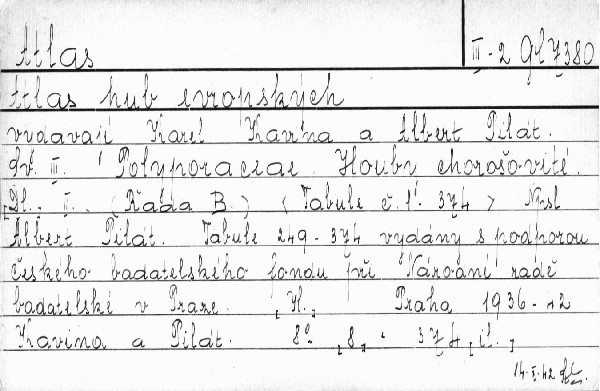 Atlas III-2 Gl 7380
Atlas hub evropských
vydávají Karel Kavina a Albert Pilát.
Sv. III. Polyporaceae. Houby chorošovité.
[Díl. II. (Řada B.) < Tabule č. 1. 374 > Npsl
Albert Pilát. Tabule 249-374 vydány s podporou
českého badatelského fondu při Národní radě
badatelské v Praze. [Kl.] Praha 1936-42
Kavina a Pilát. 8° [8] . 374 [il.]
14.X.42